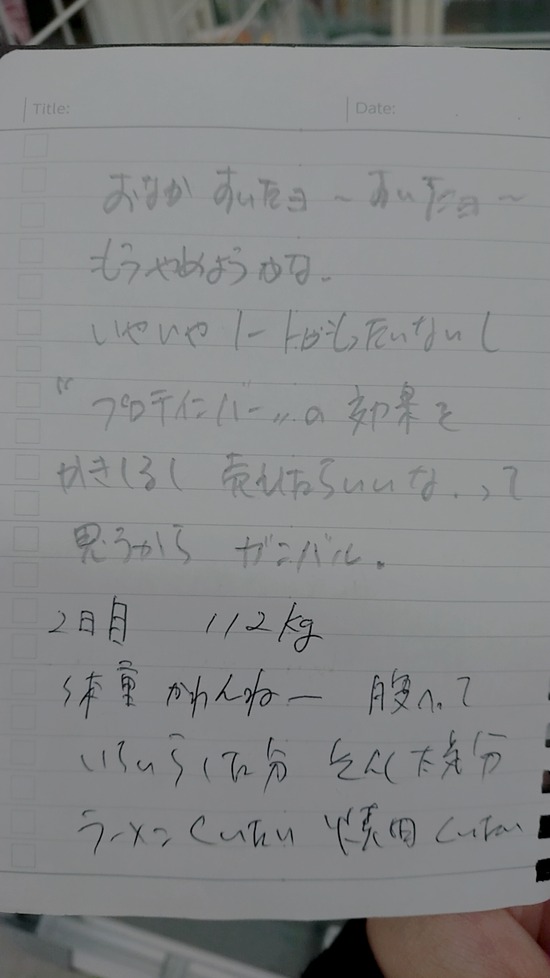 Title:
Date:
おなかすいたヨ〜すいたヨ〜
もうやめようかな。
いやいやノートがもったいないし
“プロテインバー〟の効果を
かきしるし 売れたらいいな、って
思うから ガンバル。
2日目 112kg
体重 かわんねー 腹へって
いらいらした分 そんした気分
ラーメンくいたい 焼肉くいたい